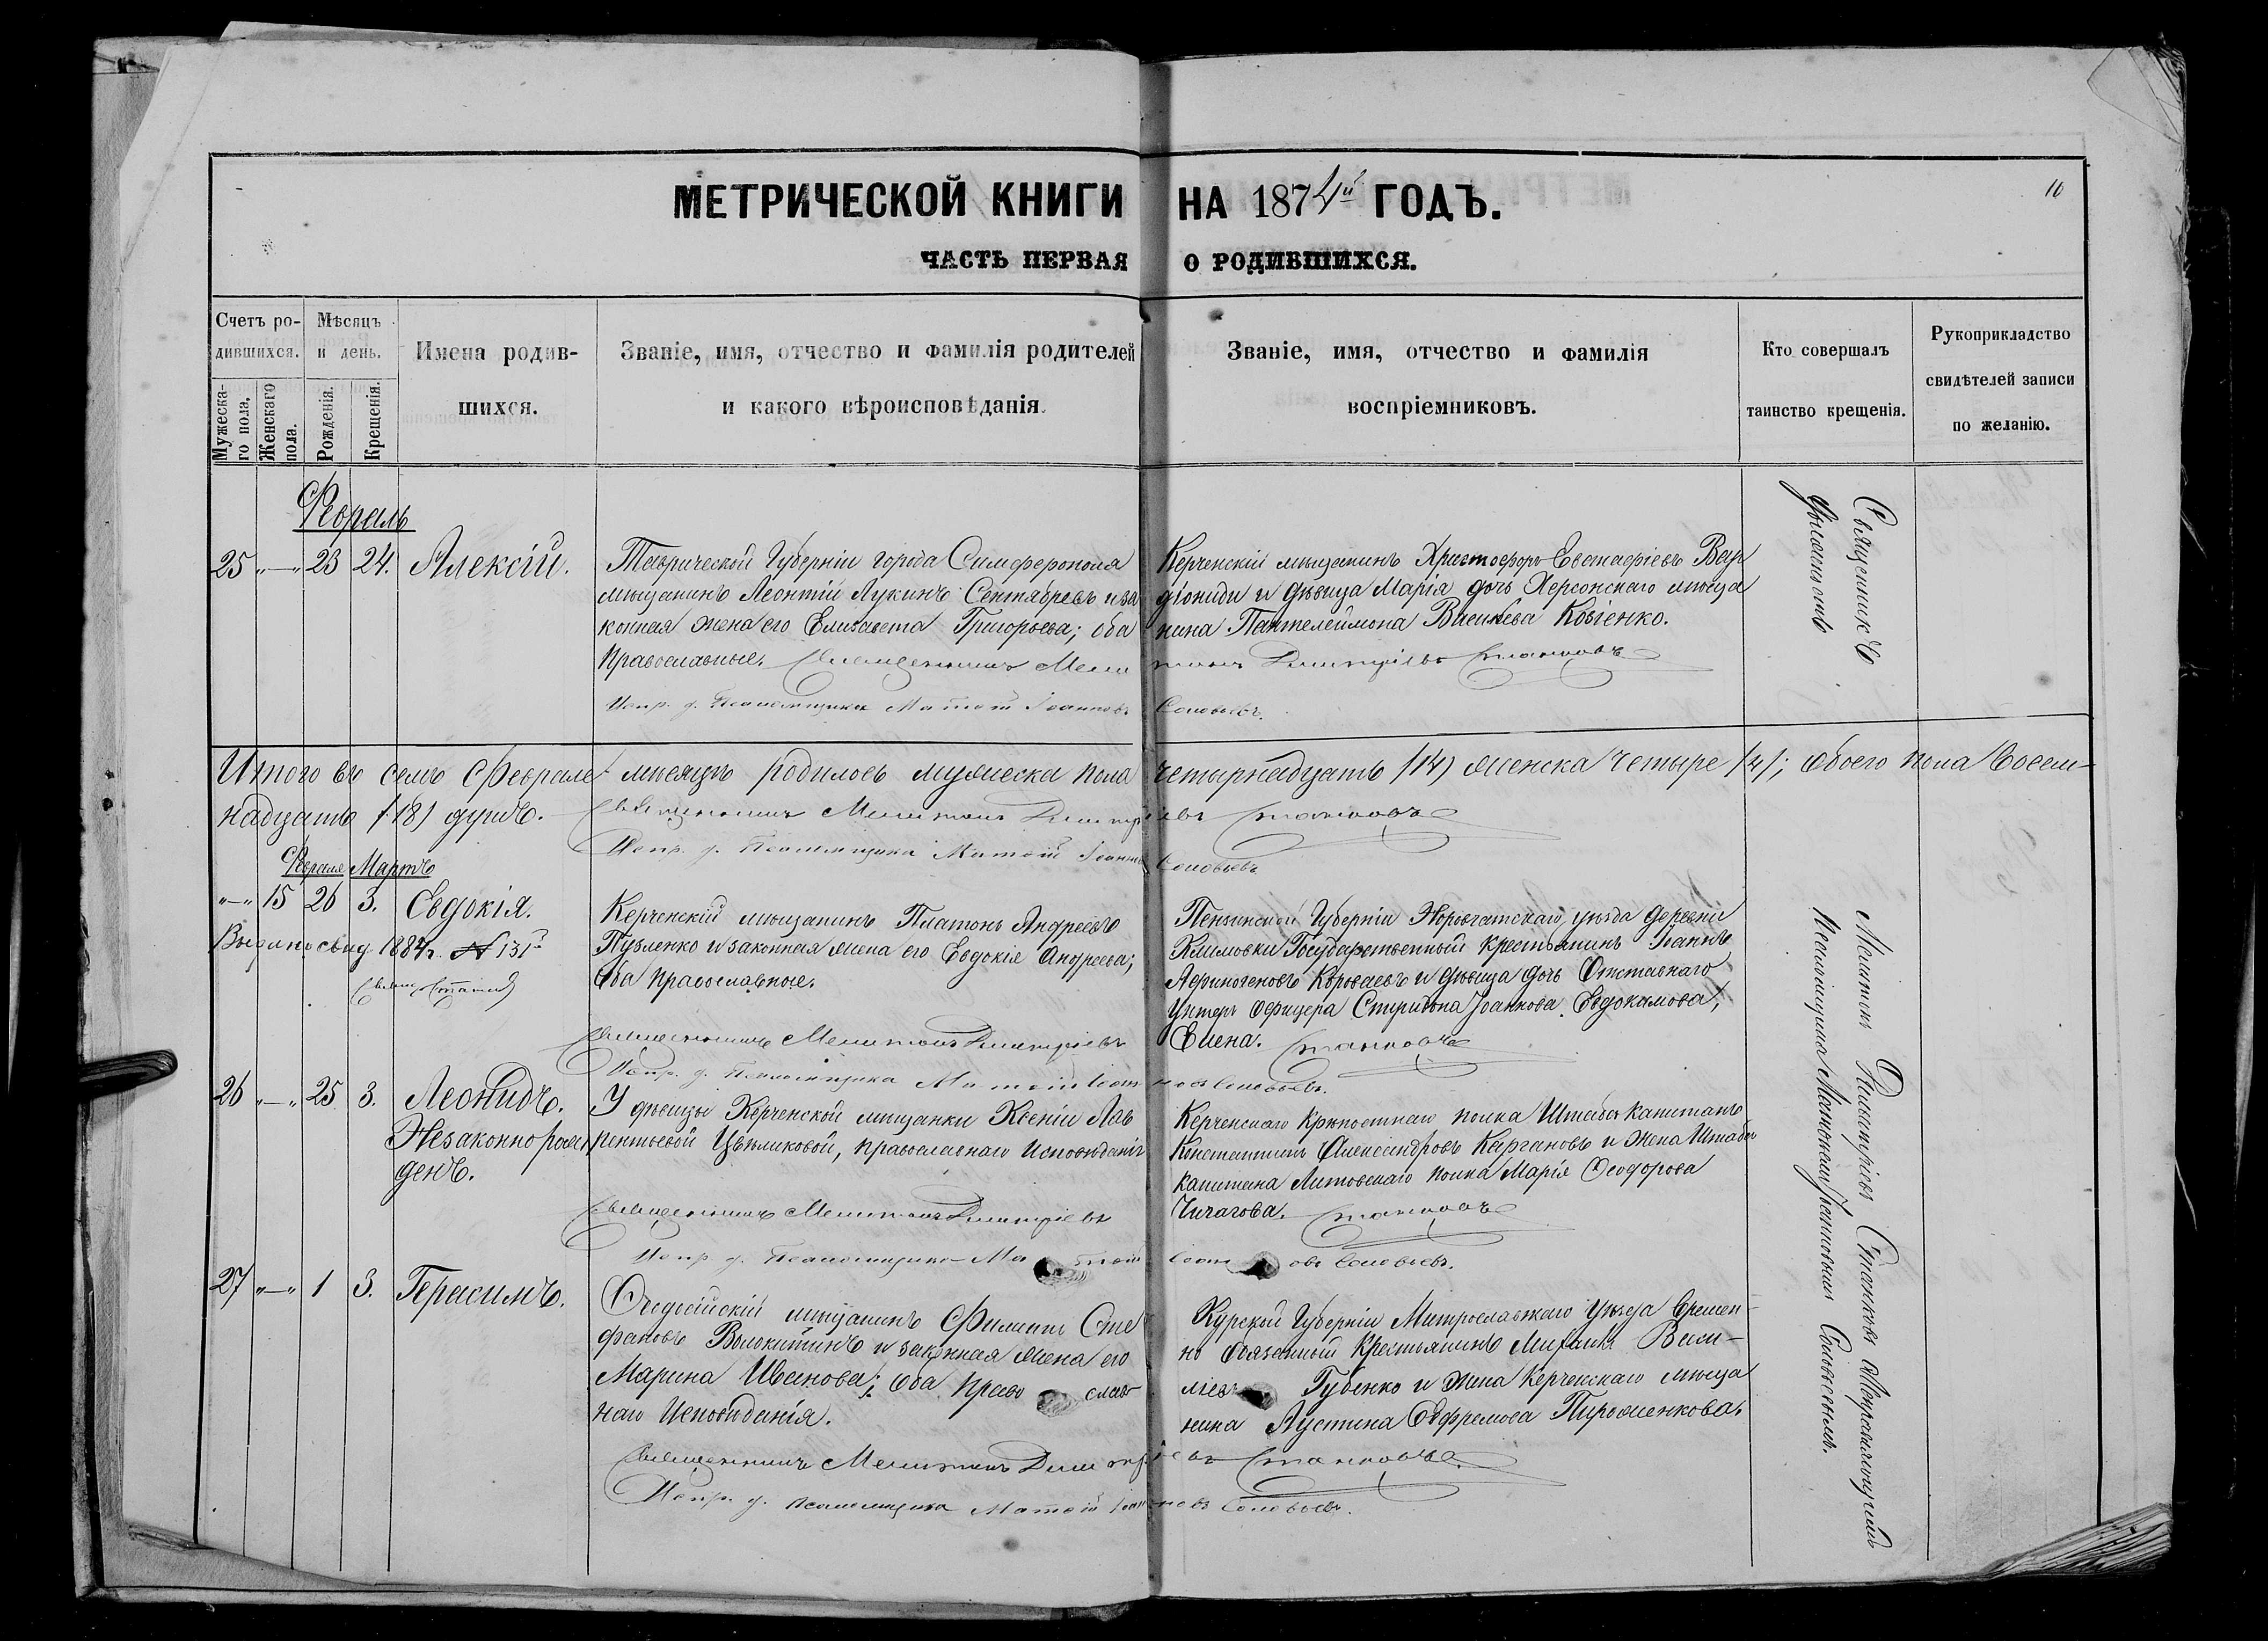 МЕТРИЧЕСКОЙ КНИГИ НА 1874й ГОДЪ.
10
ЧАСТЬ ПЕРВАЯ О РОДИВШИХСЯ.
Счетъ ро-
дившихся.
Мужеска-
го пола.
Женскаго
пола.
Мѣсяцъ
и день.
Рожденія.
Крещенія.
Имена родив-
шихся.
Званіе, имя, отчество и фамилія родителей
и какого вѣроисповѣданія.
Званіе, имя, отчество и фамилія
воспріемниковъ.
Кто совершалъ
таинство крещенія.
Рукоприкладство
свидѣтелей записи
по желанію.
Февраль
25 „—„ 23 24. Алексій.
Таврической Губерніи города Симферополя
мѣщанинъ Леонтій Лукинъ Сентябревъ и за
конная жена его Елисавета Григорьева; оба
Православные.
Керченскій мѣщанинъ Христофоръ Евстафіевъ Вар
діониди и дѣвица Марія дочь Херсонскаго мѣща
нина Пантелеймона Васильева Ковіенко.
Священникъ Мелитонъ Димитріевъ Станковъ
Испр. д. Псаломщика Матѳій Іоанновъ Соловьевъ.
Итого въ семъ Февралѣ мѣсяцѣ родилось мужеска пола четырнадцать /14/ женска четыре /4/; обоего пола восем-
надцать /18/ душъ. Священникъ Мелитонъ Димитріевъ Станковъ
Испр. д. Псаломщика Матѳій Іоанновъ Соловьевъ
Февраля Мартъ
„—„ 15 26 3. Евдокія.
Выдано свид. 1884 г. № 131
Керченскій мѣщанинъ Платонъ Андреевъ
Пузленко и законная жена его Евдокія Андреева;
Оба православные.
Пензинской Губерніи Наровчатскаго уѣзда деревни
Климовки Государственный крестьянинъ Іоаннъ
Афиногеновъ Короваевъ и дѣвица дочь Отставнаго
Унтеръ Офицера Спиридона Іоаннова Евдокимова,
Елена.
Священникъ Мелитонъ Димитріевъ Станковъ
Испр. д. Псаломщика Матѳій Іоанновъ Соловьевъ.
26 „—„ 25 3. Леонидъ.
Незаконно рож
денъ.
У дѣвицы Керченской мѣщанки Ксеніи Лав
рентьевой Цвѣтиковой, православнаго исповѣданія
Керченскаго крѣпостнаго полка Штабсъ капитанъ
Константинъ Александровъ Каргановъ и жена Штабсъ
капитана Литовскаго полка Марія Ѳеодорова
Чичагова.
Священникъ Мелитонъ Димитріевъ Станковъ
Испр. д. Псаломщика Матѳій Іоанновъ Соловьевъ.
27 „—„ 1 3. Герасимъ.
Ѳеодосійскій мѣщанинъ Филиппъ Сте
фановъ Волокитинъ и законная жена его
Марина Иванова; Оба Православ
наго Исповѣданія.
Курской Губерніи уѣзда Времен-
но обязанный Крестьянинъ Михаилъ Васи-
ліевъ Губенко и жена Керченскаго мѣща
нина Іустина Ефремова
Священникъ Мелитонъ Димитріевъ Станковъ.
Испр. д. Псаломщика Матѳій Іоанновъ Соловьевъ.
Священникъ
Мелитонъ Димитріевъ Станковъ